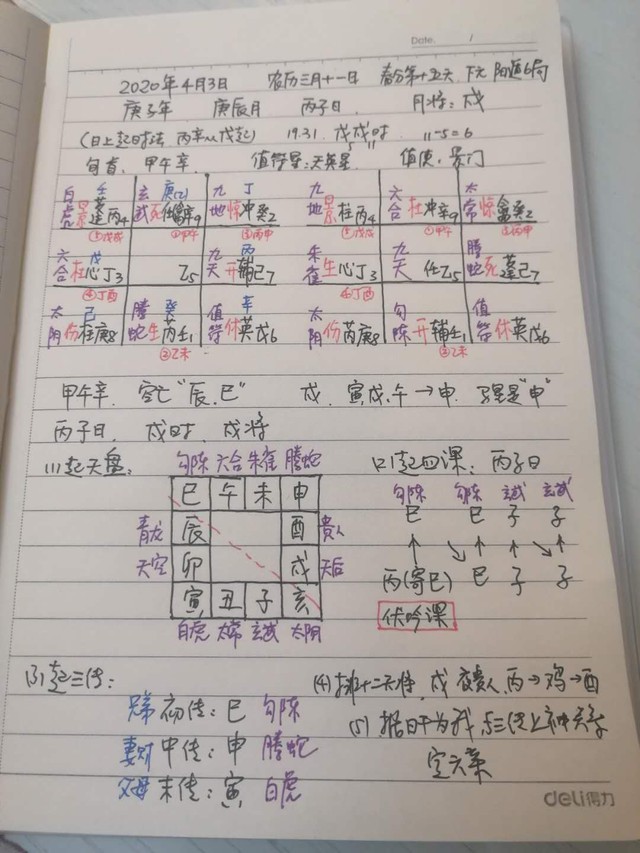 Date. /
2020年4月3日 农历三月十一日 春分第十五天 下元 阳遁6局
庚子年 庚辰月 丙子日 月将：戌
(日上起时法 丙辛从戊起) 19.31 戊戌时 11-5=6
旬首：甲午辛 值符星：天英星 值使：景门
白虎 壬 景蓬丙4 玄武 庚(乙) 死任辛9 九地 丁 惊冲癸2 九地 景柱丙4 六合 杜冲辛9 太常 惊禽癸2
①戊戌 ⑤丙申
六合 戊 杜心丁3 乙5 九天 丙 开辅己7 朱雀 生心丁3 九天 任乙5 腾蛇 死蓬己7
④丁酉 ④丁酉
太阴 己 伤柱庚8 腾蛇 癸 生芮壬1 值符 辛 休英戊6 太阴 伤芮庚8 勾陈 开辅壬1 值符 休英戊6
③乙未 ③乙未
甲午辛 空亡"辰、巳" 戌 寅戌午→申 马星是"申"
丙子日 戌时 戌将
(1)起天盘： 勾陈 六合 朱雀 腾蛇 (2)起四课：丙子日
巳 午 未 申 勾陈 勾陈 玄武 玄武
青龙 辰 酉 贵人 巳 巳 子 子
天空 卯 戌 天后 丙(寄巳) 巳 子 子
寅 丑 子 亥 伏吟课
白虎 太常 玄武 太阴
(3)起三传： (4)排十二天将 戌 夜贵人 丙→鸡→酉
兄弟 初传：巳 勾陈 (5)据日干为我，与三传上神关系
妻财 中传：申 腾蛇 定六亲
父母 末传：寅 白虎
deli得力